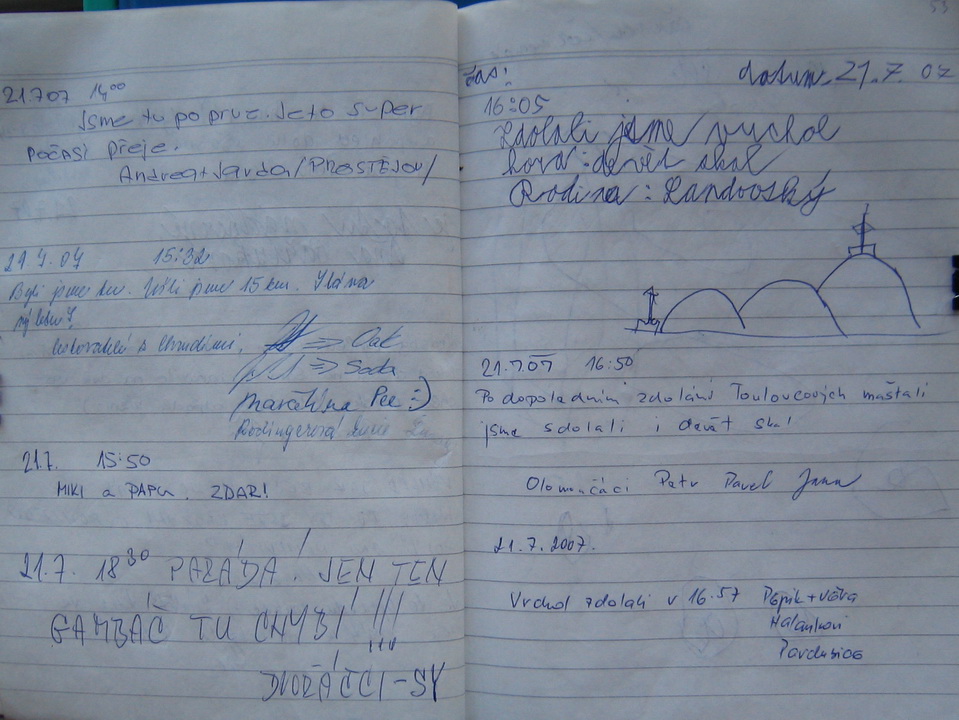 21.7.07 14⁰⁰
Jsme tu po prvé. Je to super
POČASÍ PŘEJE.
Andrea + Jarda /PROSTĚJOV/
21.7.07 15:32
Byli jsme tu. Ušli jsme 15 km.
výletu?
z Chrudimi. => Oak
=> Soda
Pee :)
21.7. 15:50
MIKI a PAPU. ZDAR!
21.7. 18³⁰ PARÁDA! JEN TEN
GAMBÁČ TU CHYBÍ !!!
DVOŘÁČCI-SY
53
čas: datum: 21.7. 07
16:05
Zdolali jsme vrchol
hora: devět skal
Rodina: Landovský
21.7.07 16:50
Po dopoledním zdolání Toulovcových maštalí
jsme zdolali i devět skal
Olomoučáci Petr Pavel Jana
21.7.2007.
Vrchol zdolali v 16.57 Pepík + Věra
Pardubice